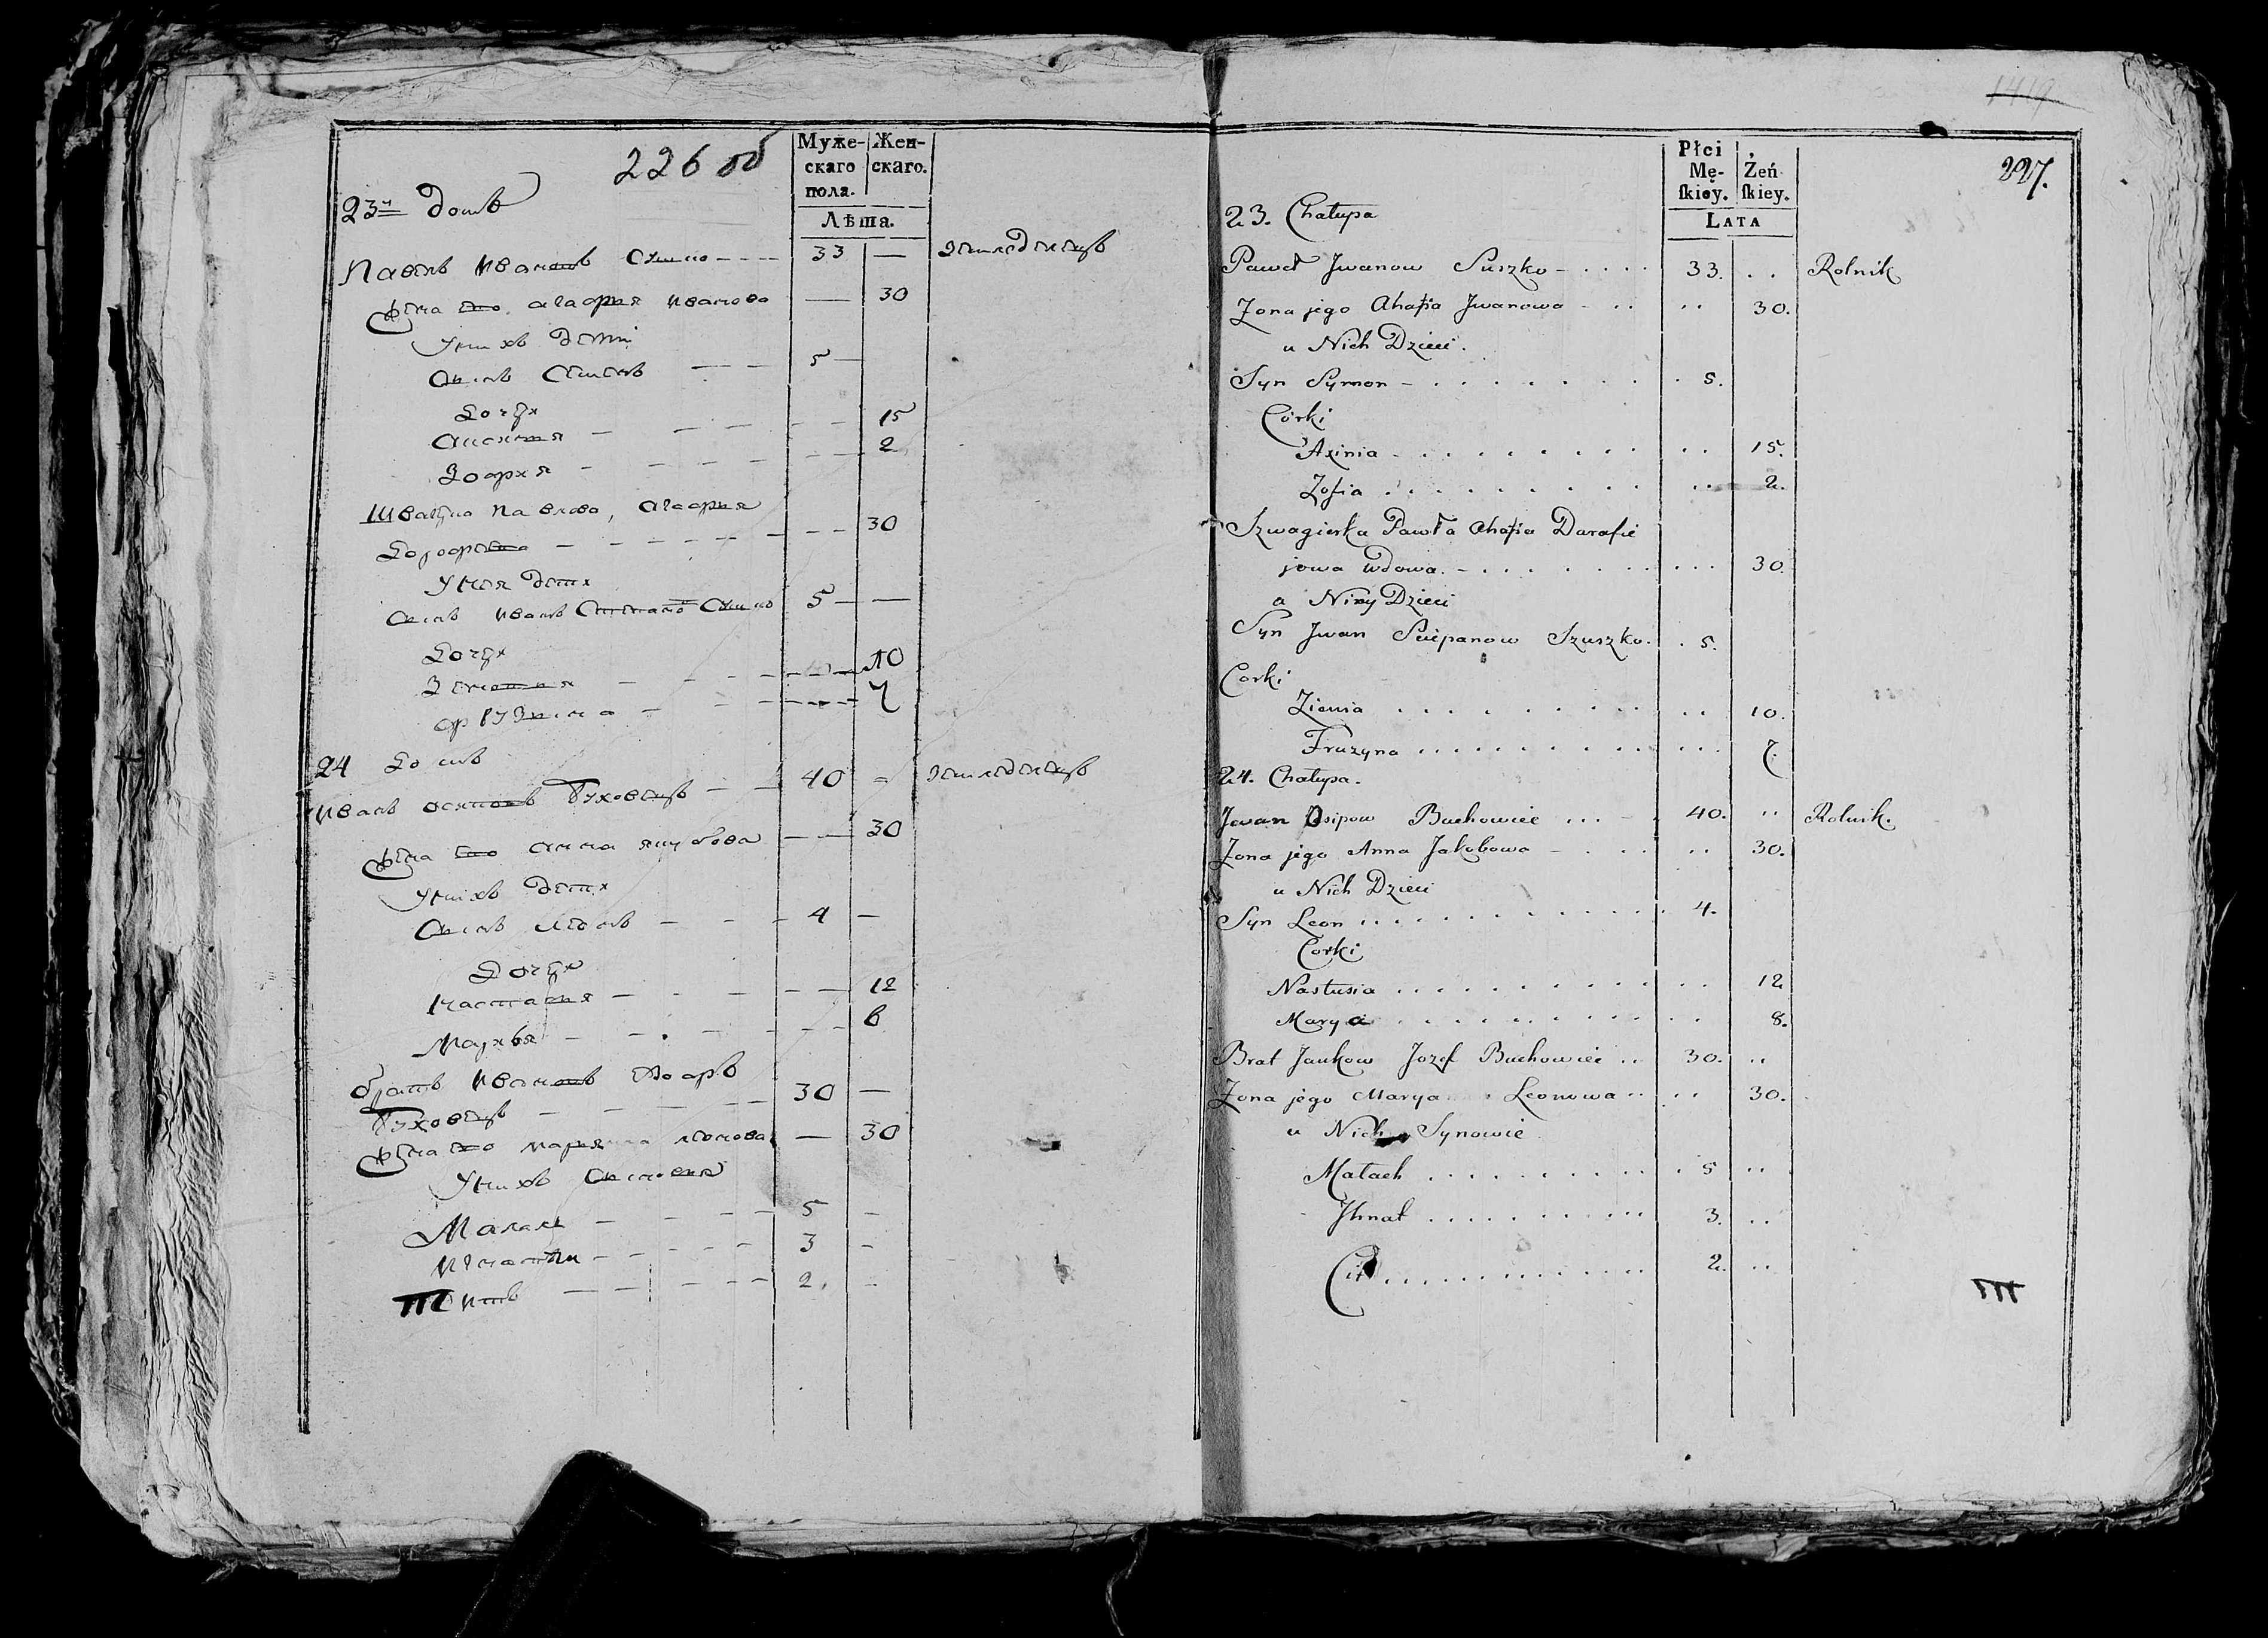 226 об
Муже-
скаго
пола.
Жен-
скаго.
Лѣта.
23й домъ
Павелъ Ивановъ Сушко 33 — земледелецъ
жена ево Агафия Иванова — 30
У них дети
Сынъ Семенъ 5 —
Дочери
Аксиния 15
Зофия 2
Швагирка Павлова, Агафия
Дорофеева 30
У нея дети
Сынъ Иванъ Степановъ Сушко 5 —
Дочери
Зеновия 10
Фрузына 7
24 Домъ
Иванъ Осиповъ Буховецъ 40 земледелецъ
жена ево Анна Якубова 30
У нихъ дети
Сынъ Леонъ 4 —
Дочери
Настасия 12
Марья 8
братъ Ивановъ Иозефъ
Буховецъ 30 —
жена ево Леонова — 30
У нихъ Сыновья
Малахъ 5 -
Игнатъ 3 -
Титъ 2. -
1419
227.
Płci
Mę-
ſkiey.
Żeń
ſkiey.
LATA
23. Chałupa
Paweł Jwanow Suszko 33. Rolnik
Zona jego Ahafia Jwanowa 30.
u Nich Dzieci.
Syn Symon 5.
Córki
Axinia 15.
Zofia 2.
Szwagierka Pawła Ahafia Darafie
jowa wdowa. 30.
u Niey Dzieci
Syn Jwan Sciepanow Szuszko. 5.
Corki
Zienia 10.
Fruzyna 7.
24. Chałupa.
Jwan Osipow Buchowiec 40. Rolnik.
Zona jego Anna Jakobowa 30.
u Nich Dzieci
Syn Leon 4.
Corki
Nastusia 12
Marya 8.
Brat Jankow Jozef Buchowiec 30.
Zona jego Marya Leonowa 30.
u Nich Synowie
Małach 5
Jhnat 3.
Cit 2.